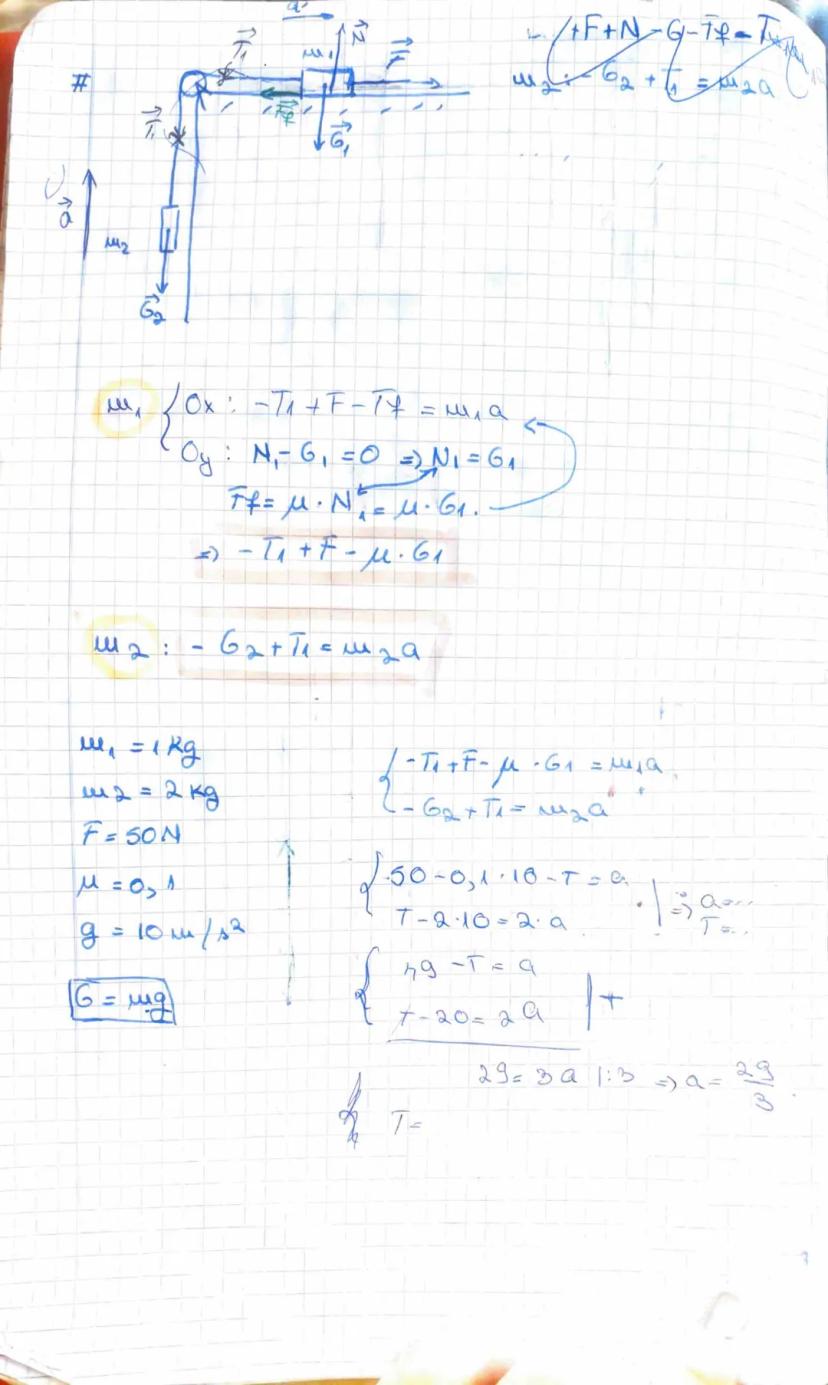 +F+N-G-Ff-T
m2: -G2+T1=m2a
a
N
m1
F
T1
#
Ff
G1
T1
a
m2
G2
m1 { Ox: -T1+F-Ff = m1a
Oy: N1-G1=0 => N1=G1
Ff= μ·N1= μ·G1.
=> -T1+F-μ·G1
m2: -G2+T1=m2a
m1 = 1kg
m2 = 2kg
F = 50N
μ = 0,1
g = 10 m/s²
G = mg
{ -T1+F-μ·G1 = m1a
-G2+T1= m2a
{ 50-0,1·10-T = a
T-2·10=2·a
=> a=...
T=..
{ 49-T= a
T-20= 2a | +
29= 3a |:3 => a= 29/3
T=